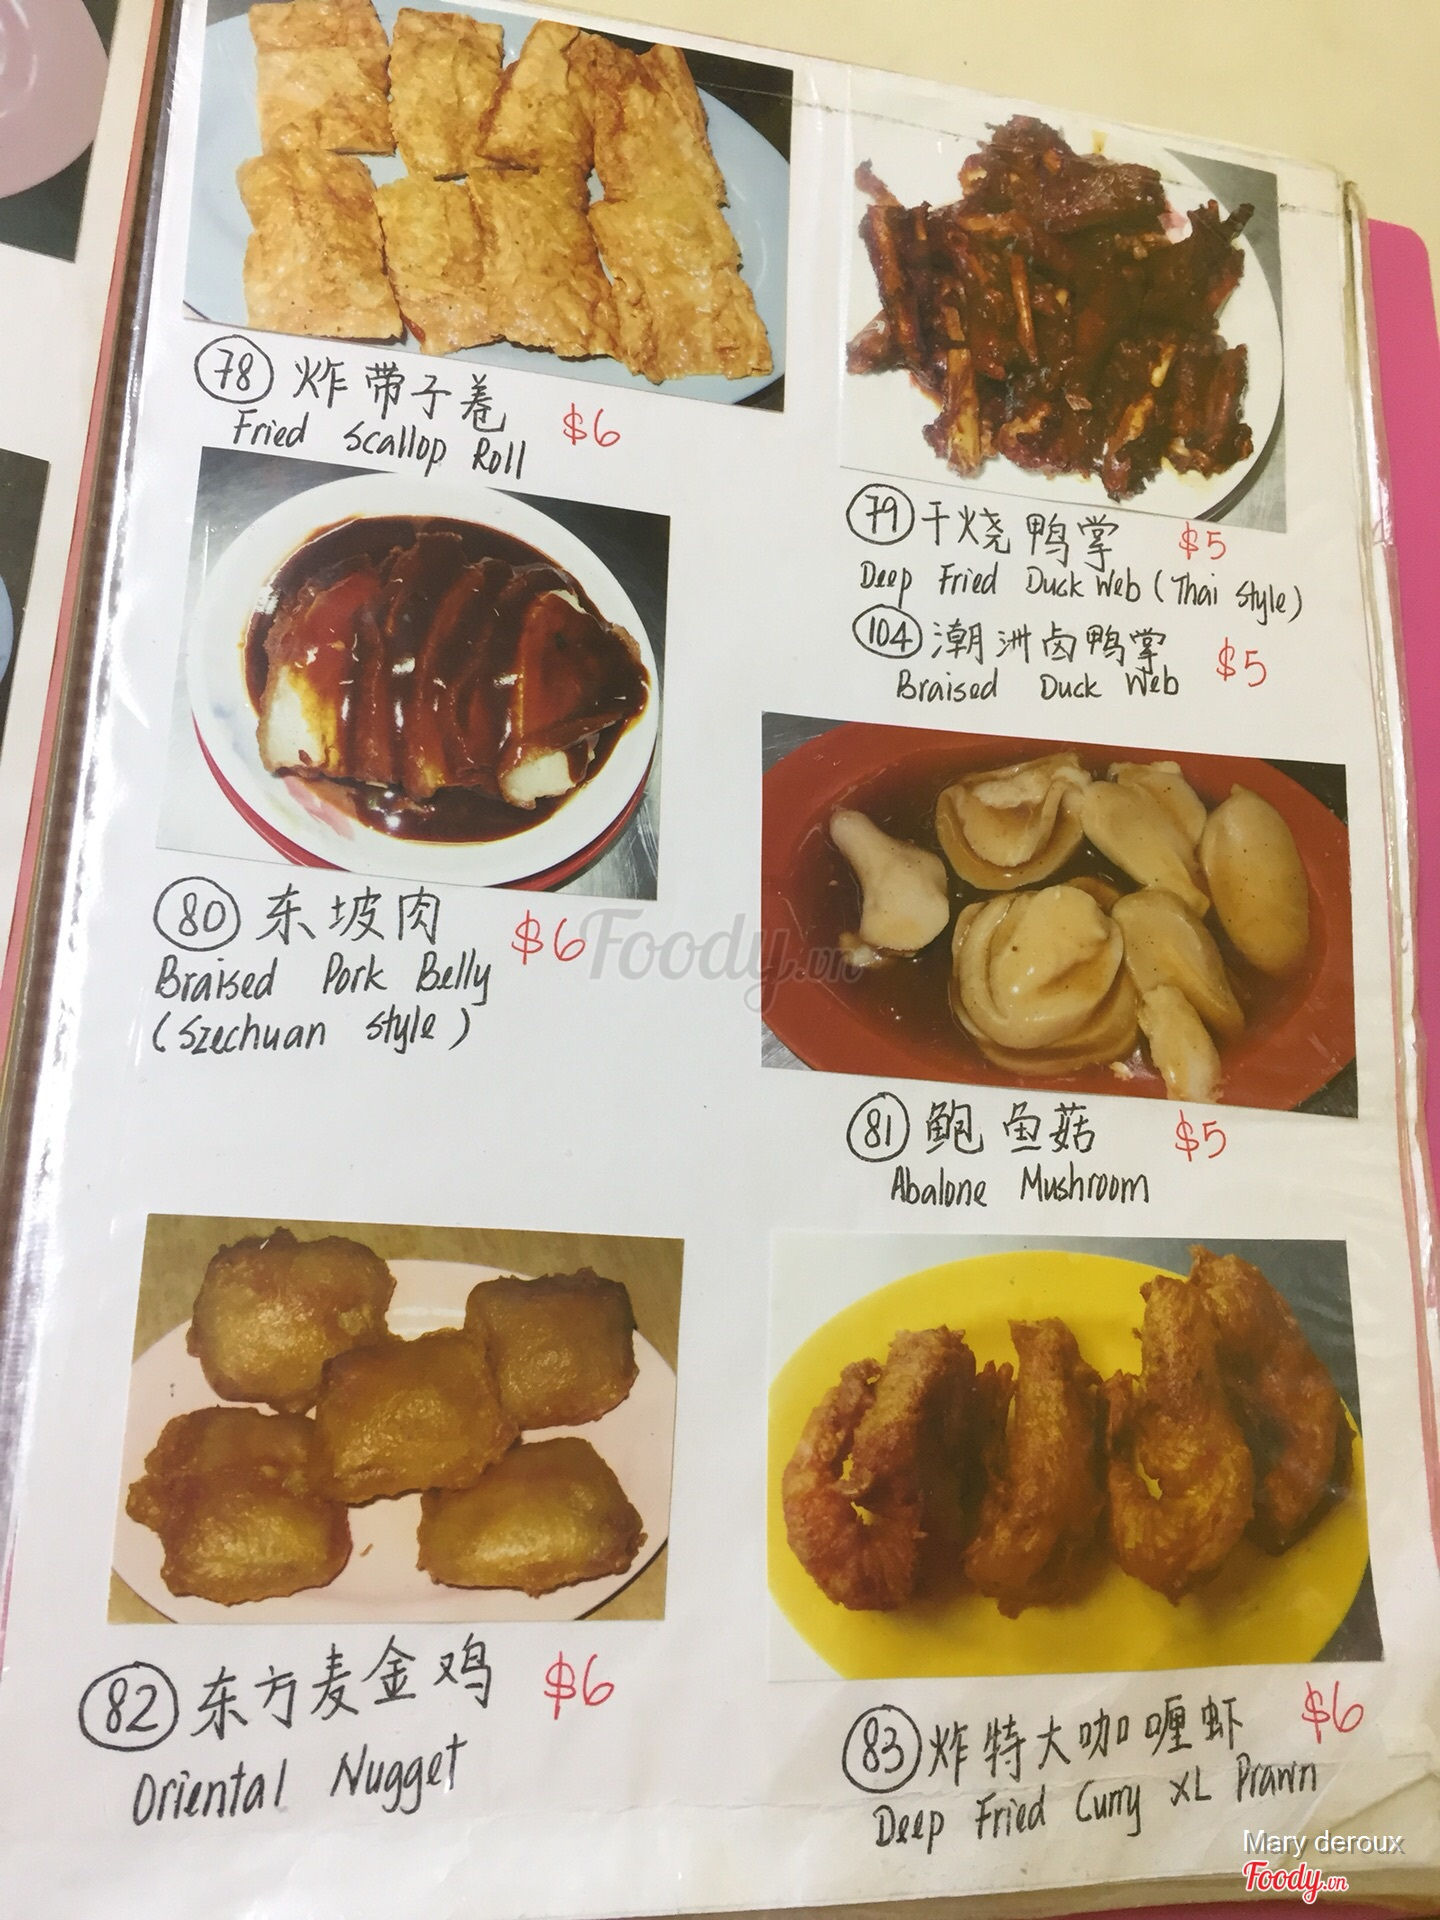 78 炸带子卷 $6
Fried Scallop Roll
79 干烧鸭掌 $5
Deep Fried Duck Web (Thai Style)
104 潮洲卤鸭掌 $5
Braised Duck Web
80 东坡肉 $6
Braised Pork Belly
(Szechuan Style)
Foody.vn
81 鲍鱼菇 $5
Abalone Mushroom
82 东方麦金鸡 $6
Oriental Nugget
83 炸特大咖喱虾 $6
Deep Fried Curry XL Prawn
Mary deroux
Foody.vn